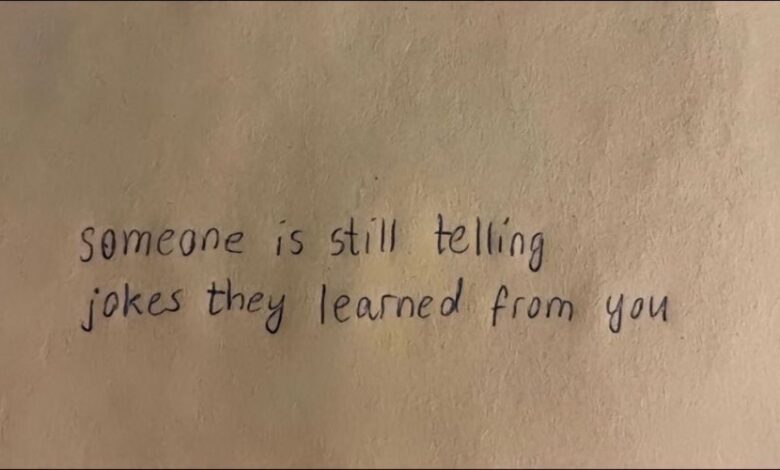 someone is still telling
jokes they learned from you